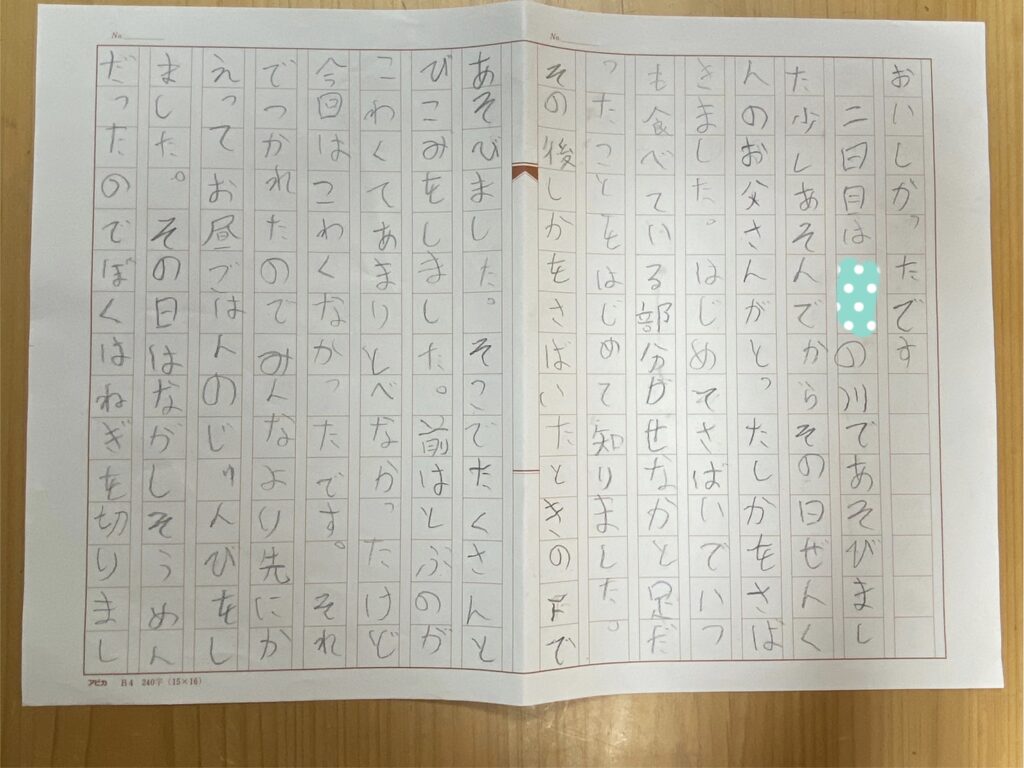 No.
No.
おいしかったです
二日日は
の川であそびまし
た少しあそんでからその日ぜんく
んのお父さんがとったしかをさば
きました。はじめてさばいでいつ
も食べている部分がせなかと足だ
ったことをはじめて知りました。
その後しかをさばいたときの下で
あそびました。そこでたくさんと
びこみをしました。前はとぶのが
こわくてあまりとべなかったけど
今回はこわくなかったです。それ
でつかれたのでみんなより先にか
えってお昼ごはんのじゅんびをし
ました。その日はながしそうめん
だったのでぼくはねぎを切りまし
アピカ B4 240字 (15×16)